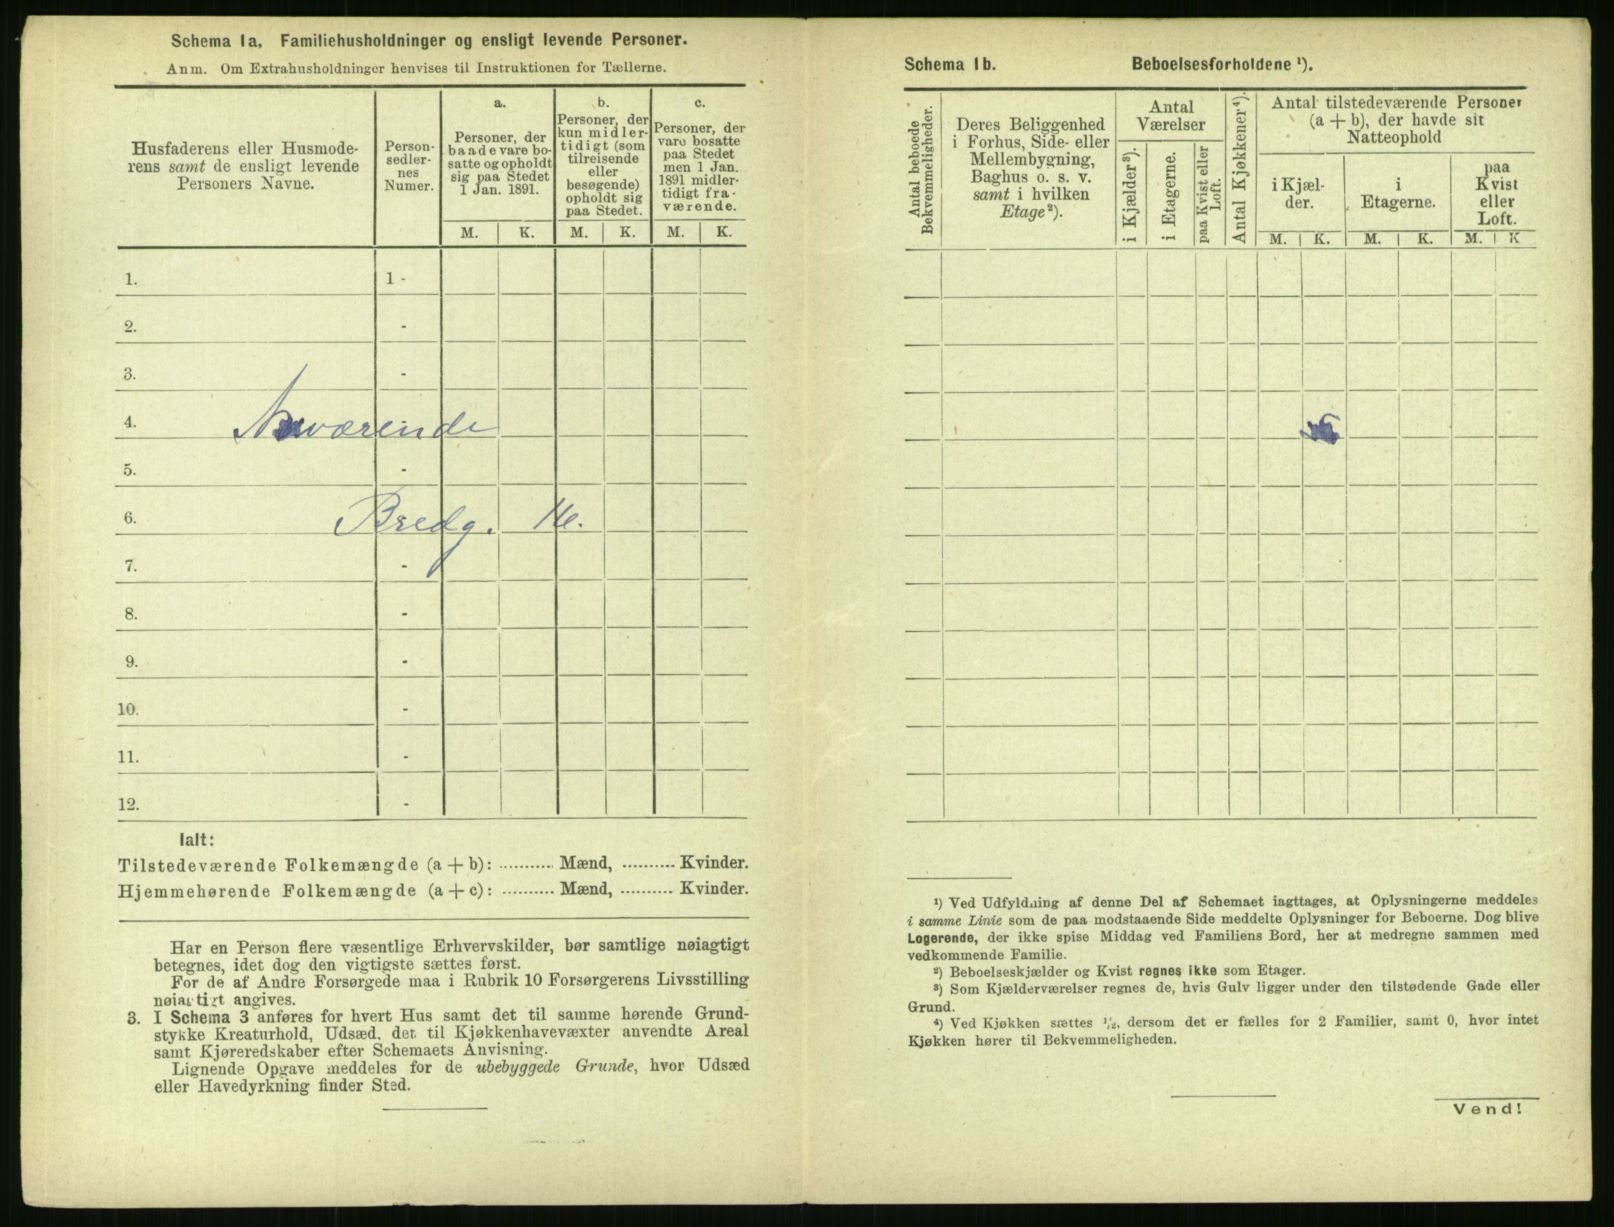 Schema 1a. Familiehusholdninger og ensligt levende Personer.
Anm. Om Extrahusholdninger henvises til Instruktionen for Tællerne.
Husfaderens eller Husmode-
rens samt de ensligt levende
Personers Navne.
Person-
sedler-
nes
Numer.
a.
Personer, der
baade vare bo-
satte og opholdt
sig paa Stedet
1 Jan. 1891.
b.
Personer, der
kun midler-
tidigt (som
tilreisende
eller
besøgende)
opholdt sig
paa Stedet.
c.
Personer, der
vare bosatte
paa Stedet
men 1 Jan.
1891 midler-
tidigt fra-
værende.
M. K. M. K. M. K.
1. 1 -
2. -
3. -
4.værende
5. -
6. Bredg. 16.
7. -
8. -
9. -
10. -
11. -
12. -
Ialt:
Tilstedeværende Folkemængde (a + b): .......... Mænd, .......... Kvinder.
Hjemmehørende Folkemængde (a + c): .......... Mænd, .......... Kvinder.
Har en Person flere væsentlige Erhvervskilder, bør samtlige nøiagtigt
betegnes, idet dog den vigtigste sættes først.
For de af Andre Forsørgede maa i Rubrik 10 Forsørgerens Livsstilling
nøiagtigt angives.
3. I Schema 3 anføres for hvert Hus samt det til samme hørende Grund-
stykke Kreaturhold, Udsæd, det til Kjøkkenhavevæxter anvendte Areal
samt Kjøreredskaber efter Schemaets Anvisning.
Lignende Opgave meddeles for de ubebyggede Grunde, hvor Udsæd
eller Havedyrkning finder Sted.
Schema 1b. Beboelsesforholdene ¹).
Antal beboede
Bekvemmeligheder.
Deres Beliggenhed
i Forhus, Side- eller
Mellembygning,
Baghus o. s. v.
samt i hvilken
Etage²).
Antal
Værelser
i Kjælder³).
i Etagerne.
paa Kvist eller
Loft.
Antal Kjøkkener⁴).
Antal tilstedeværende Personer
(a + b), der havde sit
Natteophold
i Kjæl-
der.
i
Etagerne.
paa
Kvist
eller
Loft.
M. K. M. K. M. K
¹) Ved Udfyldning af denne Del af Schemaet iagttages, at Oplysningerne meddeles
i samme Linie som de paa modstaaende Side meddelte Oplysninger for Beboerne. Dog blive
Logerende, der ikke spise Middag ved Familiens Bord, her at medregne sammen med
vedkommende Familie.
²) Beboelseskjælder og Kvist regnes ikke som Etager.
³) Som Kjælderværelser regnes de, hvis Gulv ligger under den tilstødende Gade eller
Grund.
⁴) Ved Kjøkken sættes ½, dersom det er fælles for 2 Familier, samt 0, hvor intet
Kjøkken hører til Bekvemmeligheden.
Vend!